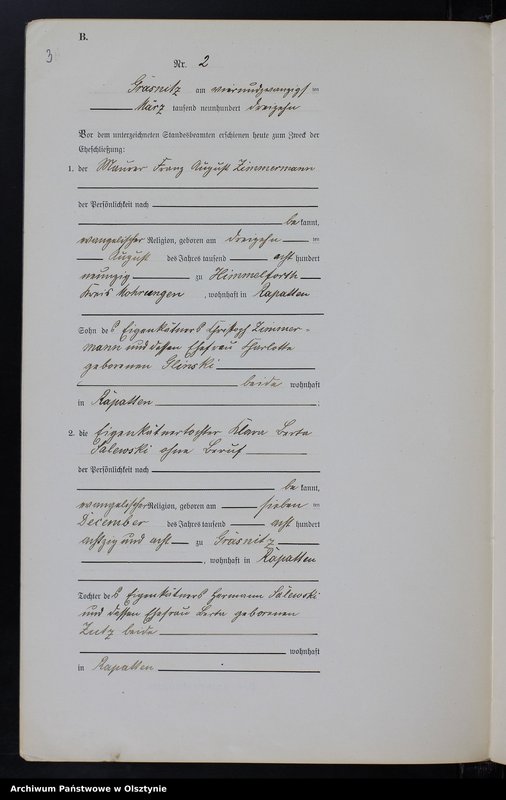 B.
3
Nr. 2
Gräsnitz am vierundzwanzigsten
März tausend neunhundert dreizehn
Vor dem unterzeichneten Standesbeamten erschienen heute zum Zweck der
Eheschließung:
1. der Maurer Franz August Zimmermann
der Persönlichkeit nach
bekannt,
evangelischer Religion, geboren am dreizehnten
August des Jahres tausend acht hundert
neunzig zu Himmelforth
Kreis Mohrungen, wohnhaft in Rapatten
Sohn des Eigenkätners Christoph Zimmer-
mann und dessen Ehefrau Charlotte
geborenen Glinski
beide wohnhaft
in Rapatten;
2. die Eigenkätnertochter Klara Berta
Salewski ohne Beruf
der Persönlichkeit nach
bekannt,
evangelischer Religion, geboren am siebenten
December des Jahres tausend acht hundert
achtzig und acht zu Gräsnitz
, wohnhaft in Rapatten
Tochter des Eigenkätners Hermann Salewski
und dessen Ehefrau Berta geborenen
beide
wohnhaft
in Rapatten
Archiwum Państwowe w Olsztynie